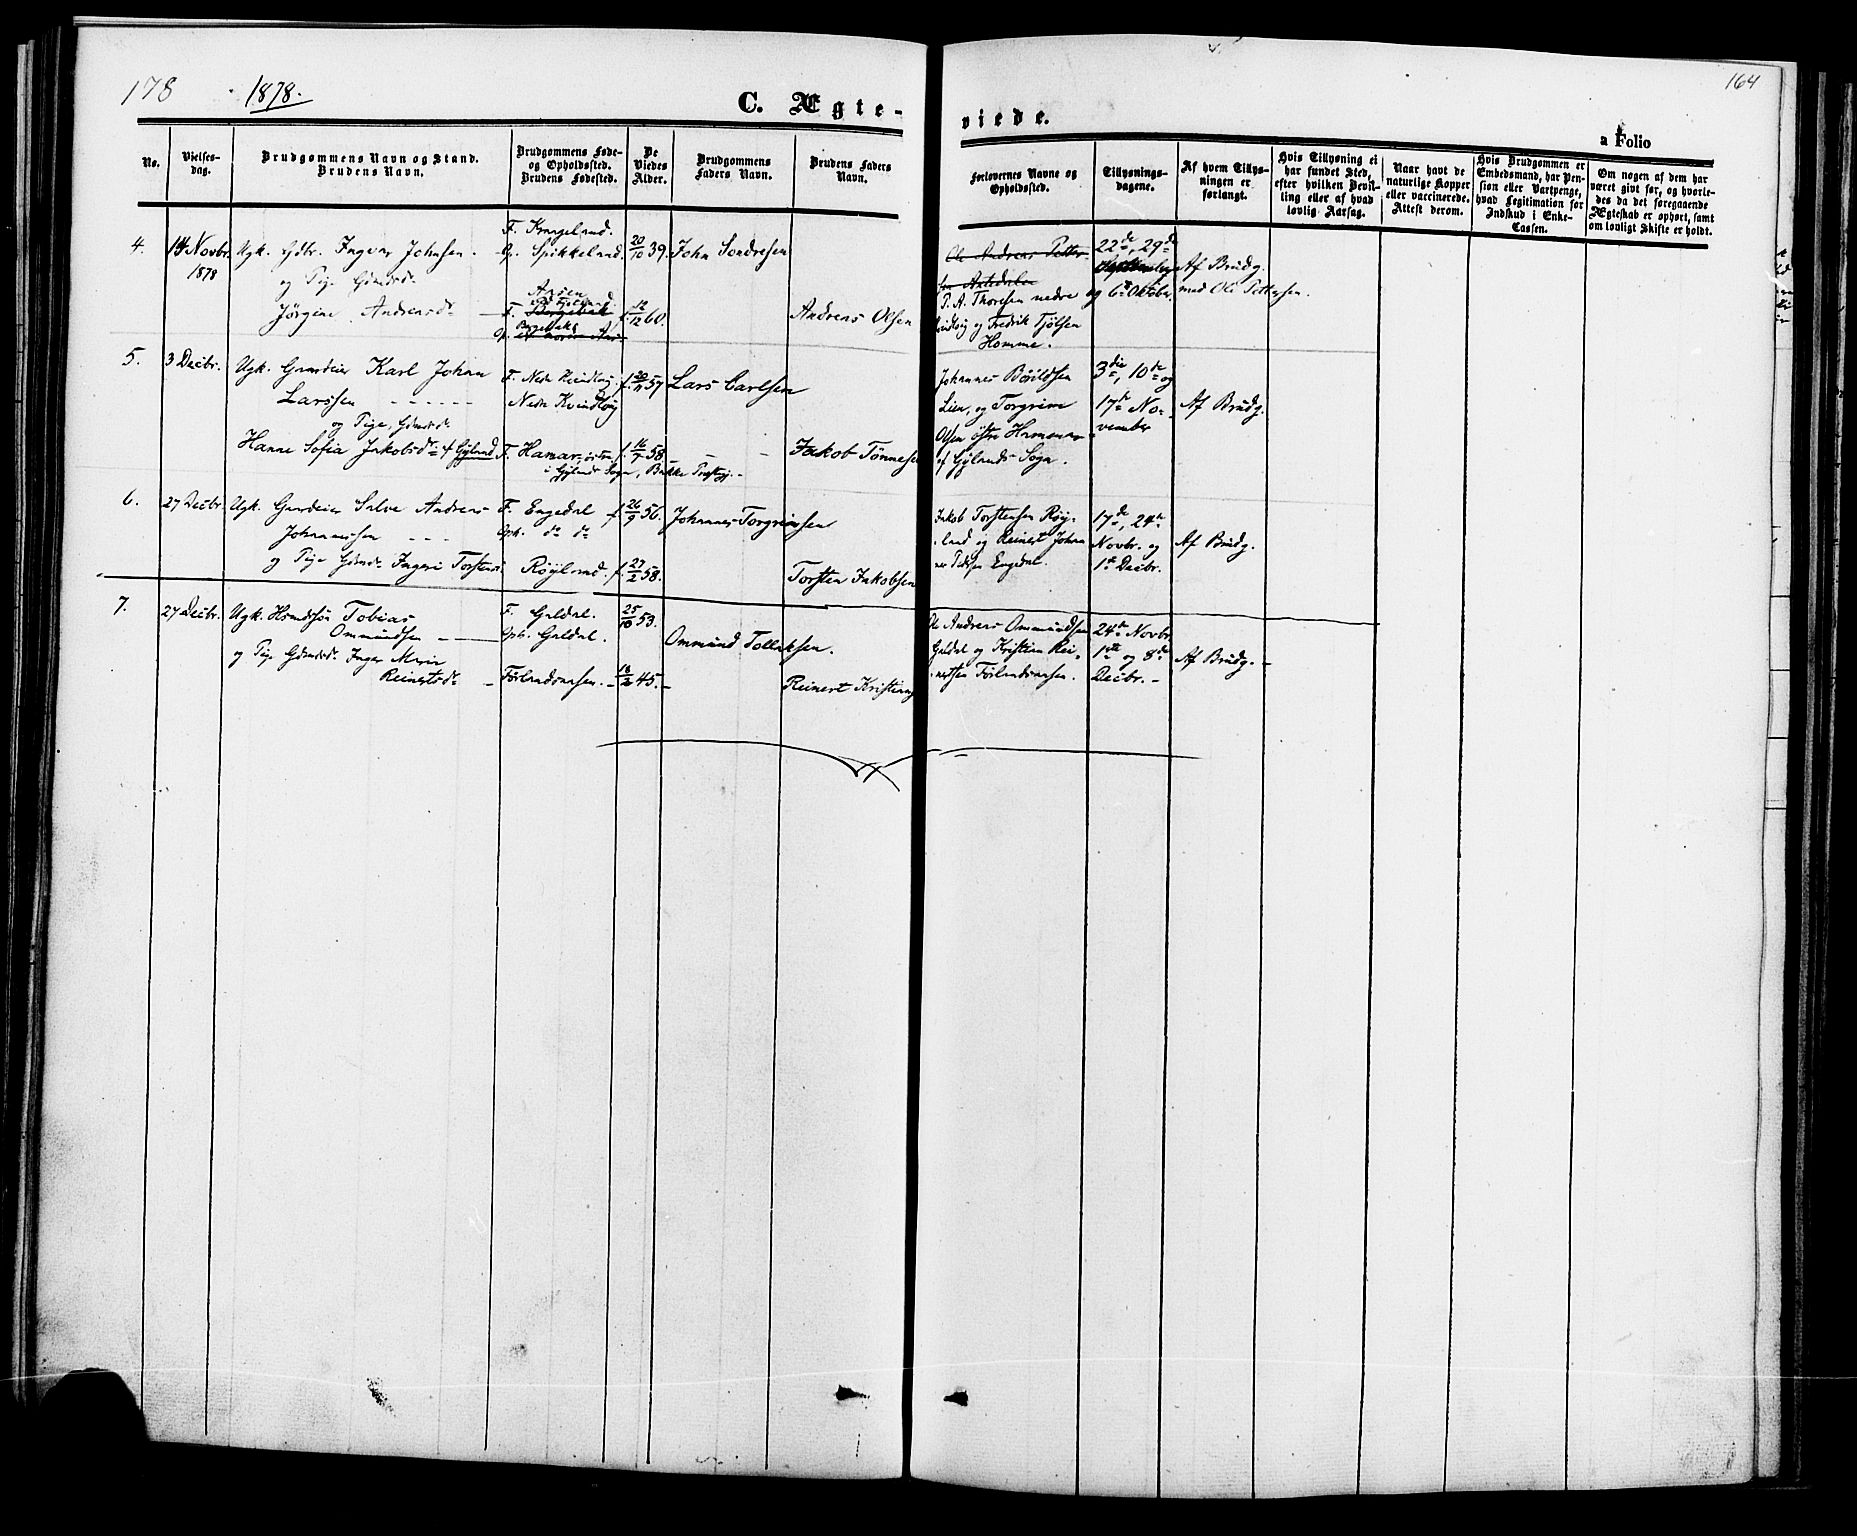 178 1878.
164
C. Ægte-
viede.
a Folio
No.
Vielses-
dag.
Brudgommens Navn og Stand.
Brudens Navn.
Brudgommens Føde-
og Opholdssted.
Brudens Fødested.
De
Viedes
Alder.
Brudgommens
Faders Navn.
Brudens Faders
Navn.
Forlovernes Navne og
Opholdssted.
Tillysnings-
dagene.
Af hvem Tillys-
ningen er
forlangt.
Hvis Tillysning ei
har fundet Sted,
efter hvilken Bevil-
ling eller af hvad
lovlig Aarsag.
Naar havt de
naturlige Kopper
eller vaccinerede.
Attest derom.
Hvis Brudgommen er
Embedsmand, har Pen-
sion eller Vartpenge,
hvad Legitimation for
Indskud i Enke-
Cassen.
Om nogen af dem har
været givt før, og hvorle-
des da det foregaaende
Ægteskab er ophørt, samt
om lovligt Skifte er holdt.
4.
14 Novbr.
1878
Ugk. Gdbr. Ingvar Johnsen.
og Pige Gdmdsd.
Jørgine Andreasd.
F. Kragelund.
Op. Spikkeland.
F. Bergebak
20/10 39.
f. 12/12 60.
John Sondresen
Andreas Olsen
Ole Andreas Petter-
sen
T. A. Thoresen nedre
Kvidlog og Fredrik Tjølsen
Homme.
22de, 29de
og 6te Oktober.
Af Brudg.
med Ole Pettersen.
5.
3 Decbr.
Ugk. Gaardeier Karl Johan
Larssen
og Pige, Gdmdsd.
Hanne Sofia Jakobsdr. af Gyland
F. Nedr Kvidlog
Nedr Kvidlog
F. Hamar, østre
i Gylands Sogn, Bakke Prstgj.
f. 20/11 57
f. 16/7 58
Lars Carlsen
Jakob Tønnesen
Johannes Bårildsen
Lien, og Torgrim
Olsen østre Hamar
af Gylands Sogn.
3die, 10de og
17de No-
vember
Af Brudg.
6.
27 Decbr.
Ugk. Gaardeier Salve Andreas
Johannessen
og Pige Gdmds. Ingeri Torstensd.
F. Engedal
Oph. do do
Røyland.
f. 26/9 56.
f. 27/2 58.
Johannes Torgrimsen
Torsten Jakobsen
Jakob Torstensen Røy-
land og Reinert Johan
nes Engedal.
17de, 24de
Novbr. og
1ste Decbr.
Af Brudg.
7.
27 Decbr.
Ugk. Husmdssøn Tobias
Ommundsen
og Pige Gdmdsd. Inger Marie
Reinertsdr.
F. Galdal.
Oph. Galdal.
Førlandsaasen.
25/10 53.
18/2 45.
Ommund Tollaksen.
Reinert Kristians
Ole Andreas Ommundsen
Galdal og Kristian Rei-
nertsen Førlandsaasen.
24de Novbr.
1ste og 8de
Decbr.
Af Brudg.